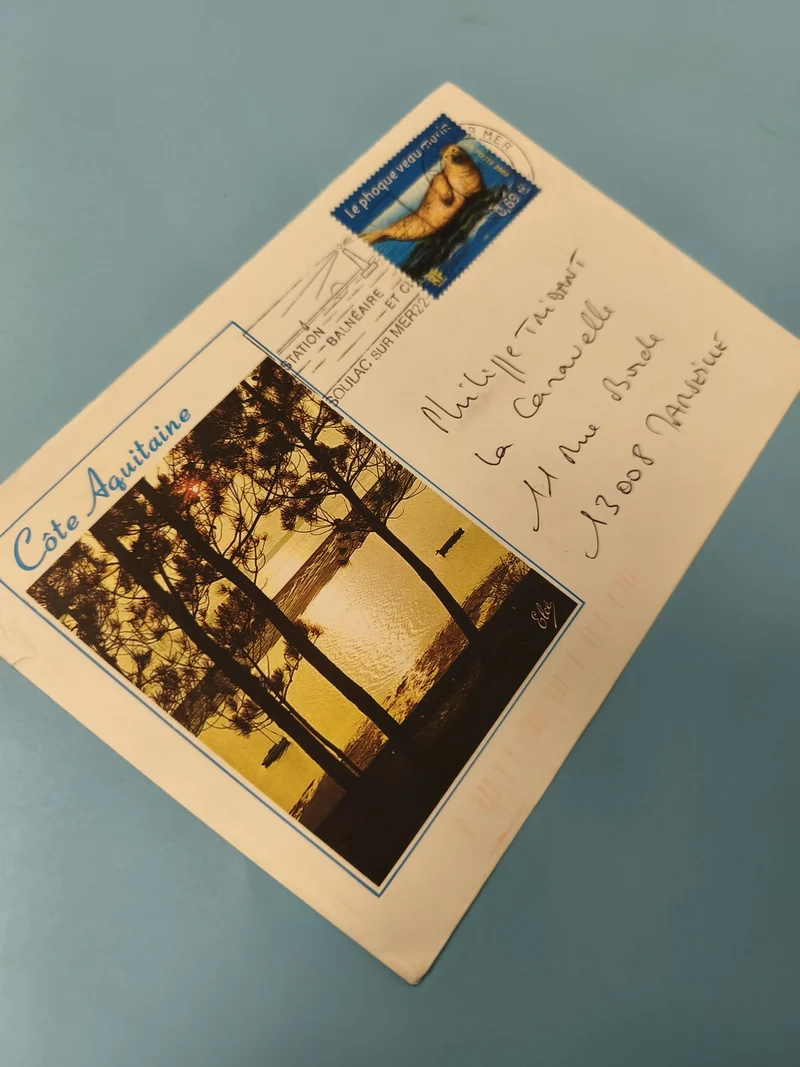 R MER
Le phoque veau marin
0,69 €
RF
STATION
BALNÉAIRE
ET CL
SOULAC.SUR MER22
Philippe TRIDANT
La Caravelle
11 Rue Borde
13008 MARSEILLE
Côte Aquitaine
Elcé